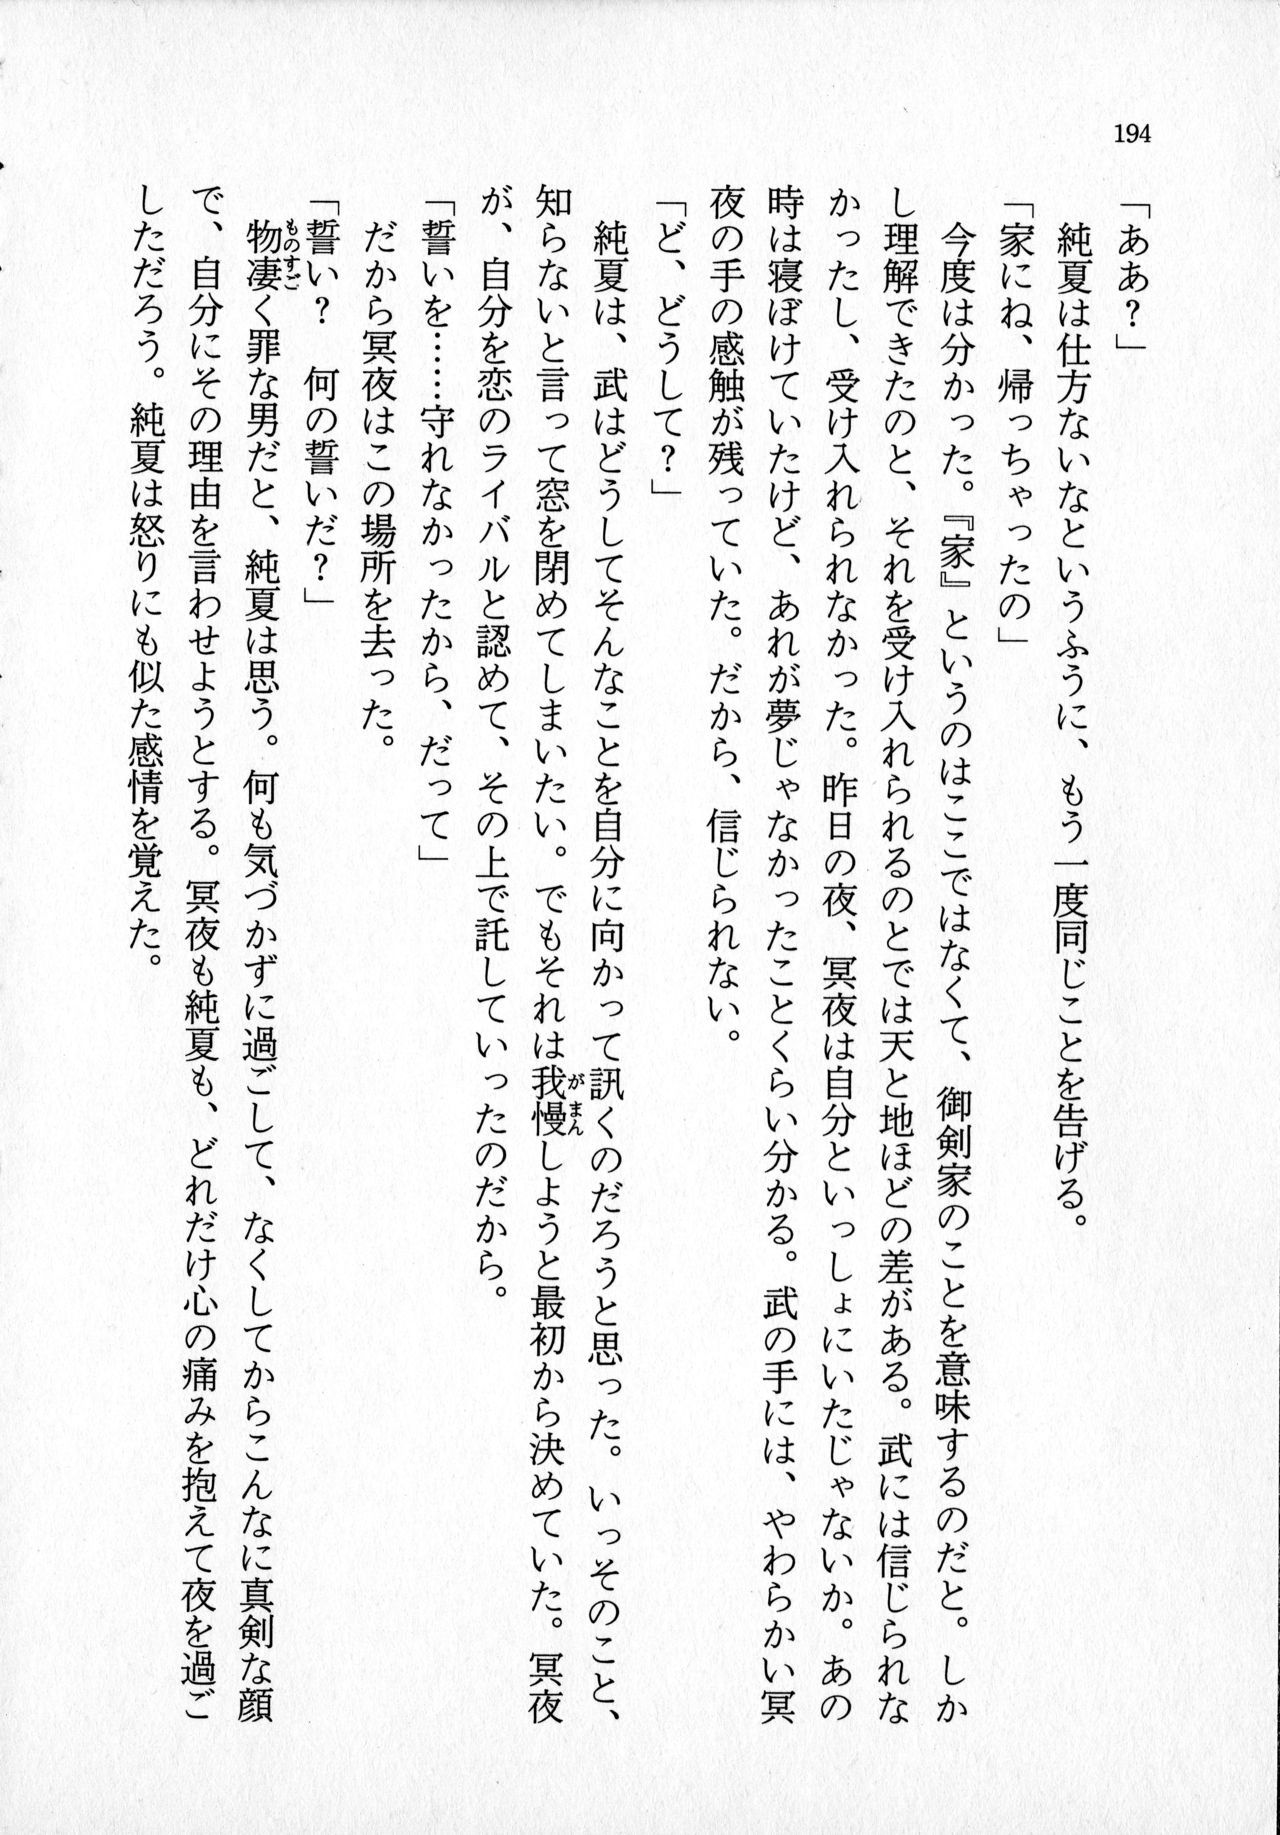 194
「ああ？」
　純夏は仕方ないなというふうに、もう一度同じことを告げる。
「家にね、帰っちゃったの」
　今度は分かった。『家』というのはここではなくて、御剣家のことを意味するのだと。しか
し理解できたのと、それを受け入れられるのとでは天と地ほどの差がある。武には信じられな
かったし、受け入れられなかった。昨日の夜、冥夜は自分といっしょにいたじゃないか。あの
時は寝ぼけていたけど、あれが夢じゃなかったことくらい分かる。武の手には、やわらかい冥
夜の手の感触が残っていた。だから、信じられない。
「ど、どうして？」
　純夏は、武はどうしてそんなことを自分に向かって訊くのだろうと思った。いっそのこと、
知らないと言って窓を閉めてしまいたい。でもそれは我慢しようと最初から決めていた。冥夜
が、自分を恋のライバルと認めて、その上で託していったのだから。
「誓いを……守れなかったから、だって」
　だから冥夜はこの場所を去った。
「誓い？　何の誓いだ？」
　物凄く罪な男だと、純夏は思う。何も気づかずに過ごして、なくしてからこんなに真剣な顔
で、自分にその理由を言わせようとする。冥夜も純夏も、どれだけ心の痛みを抱えて夜を過ご
しただろう。純夏は怒りにも似た感情を覚えた。